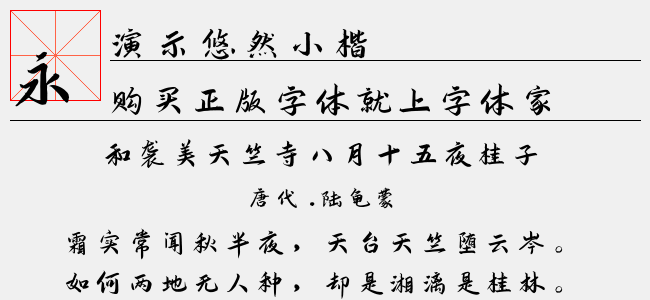 永
演示悠然小楷
购买正版字体就上字体家
和袭美天竺寺八月十五夜桂子
唐代.陆龟蒙
霜实常闻秋半夜，天台天竺堕云岑。
如何两地无人种，却是湘漓是桂林。